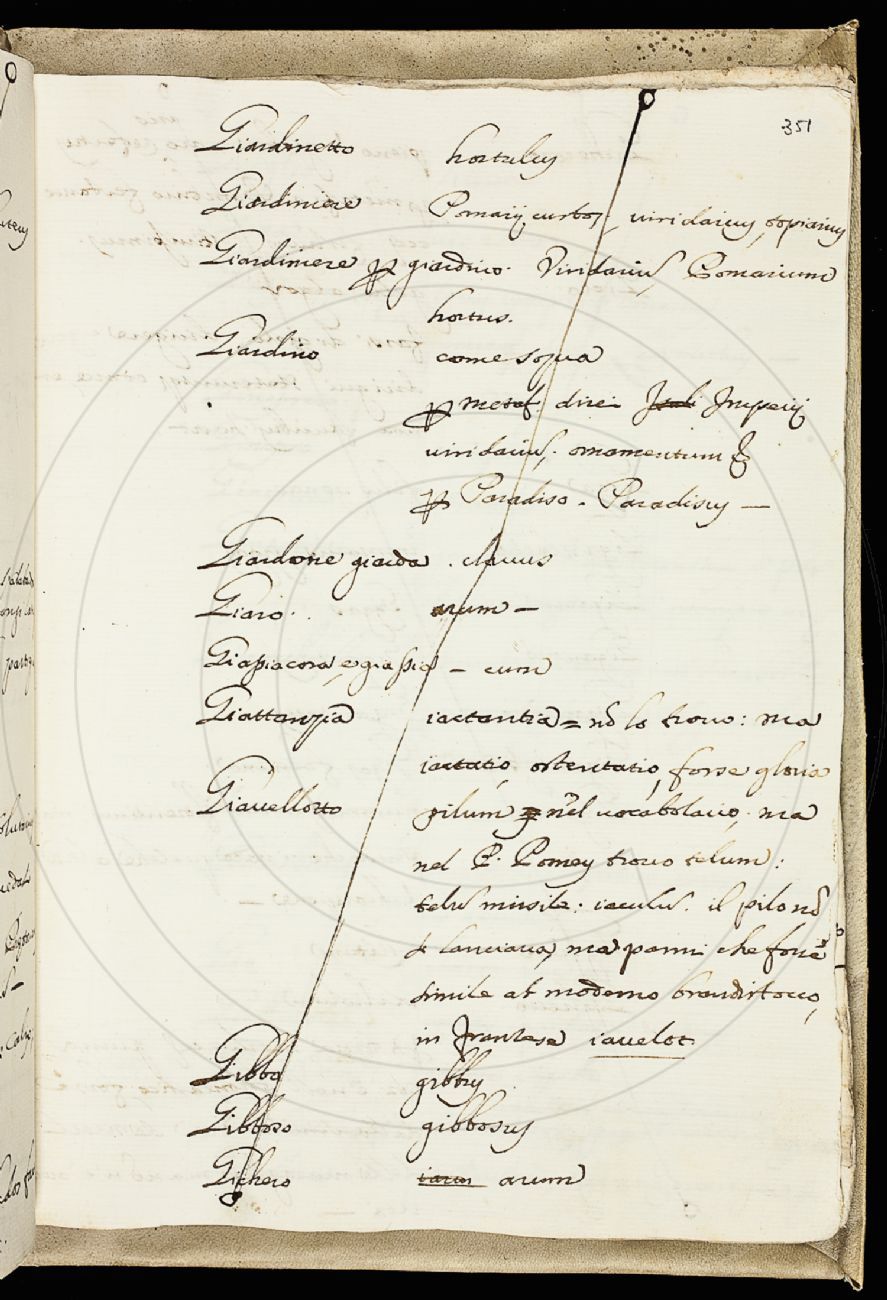 351
Giardinetto hortulus
Giardiniere Pomarij custos, viridarius, topiarius
Giardiniere p giardino. Viridariū, Pomarium
hortus.
Giardino come sopra
p metaf. direi Itali Imperij
viridariū, ornamentum &
p Paradiso. Paradisus —
Giardone giarda. clavus
Giaro. arum —
Giasiacora, e giassia — cum
Giattanzia iactantia = nõ lo trovo: ma
iactatio, ostentatio, forse gloria
Giavellotto pilum nel vocabolario, ma
nel P. Pomey trovo telum:
telū missile: iaculū. il pilo nõ
si lanciava, ma parmi che fosse
simile al moderno brandistocco,
in franzese iavelot
Gibbo gibbus
Gibboso gibbosus
Gichero iarum arum